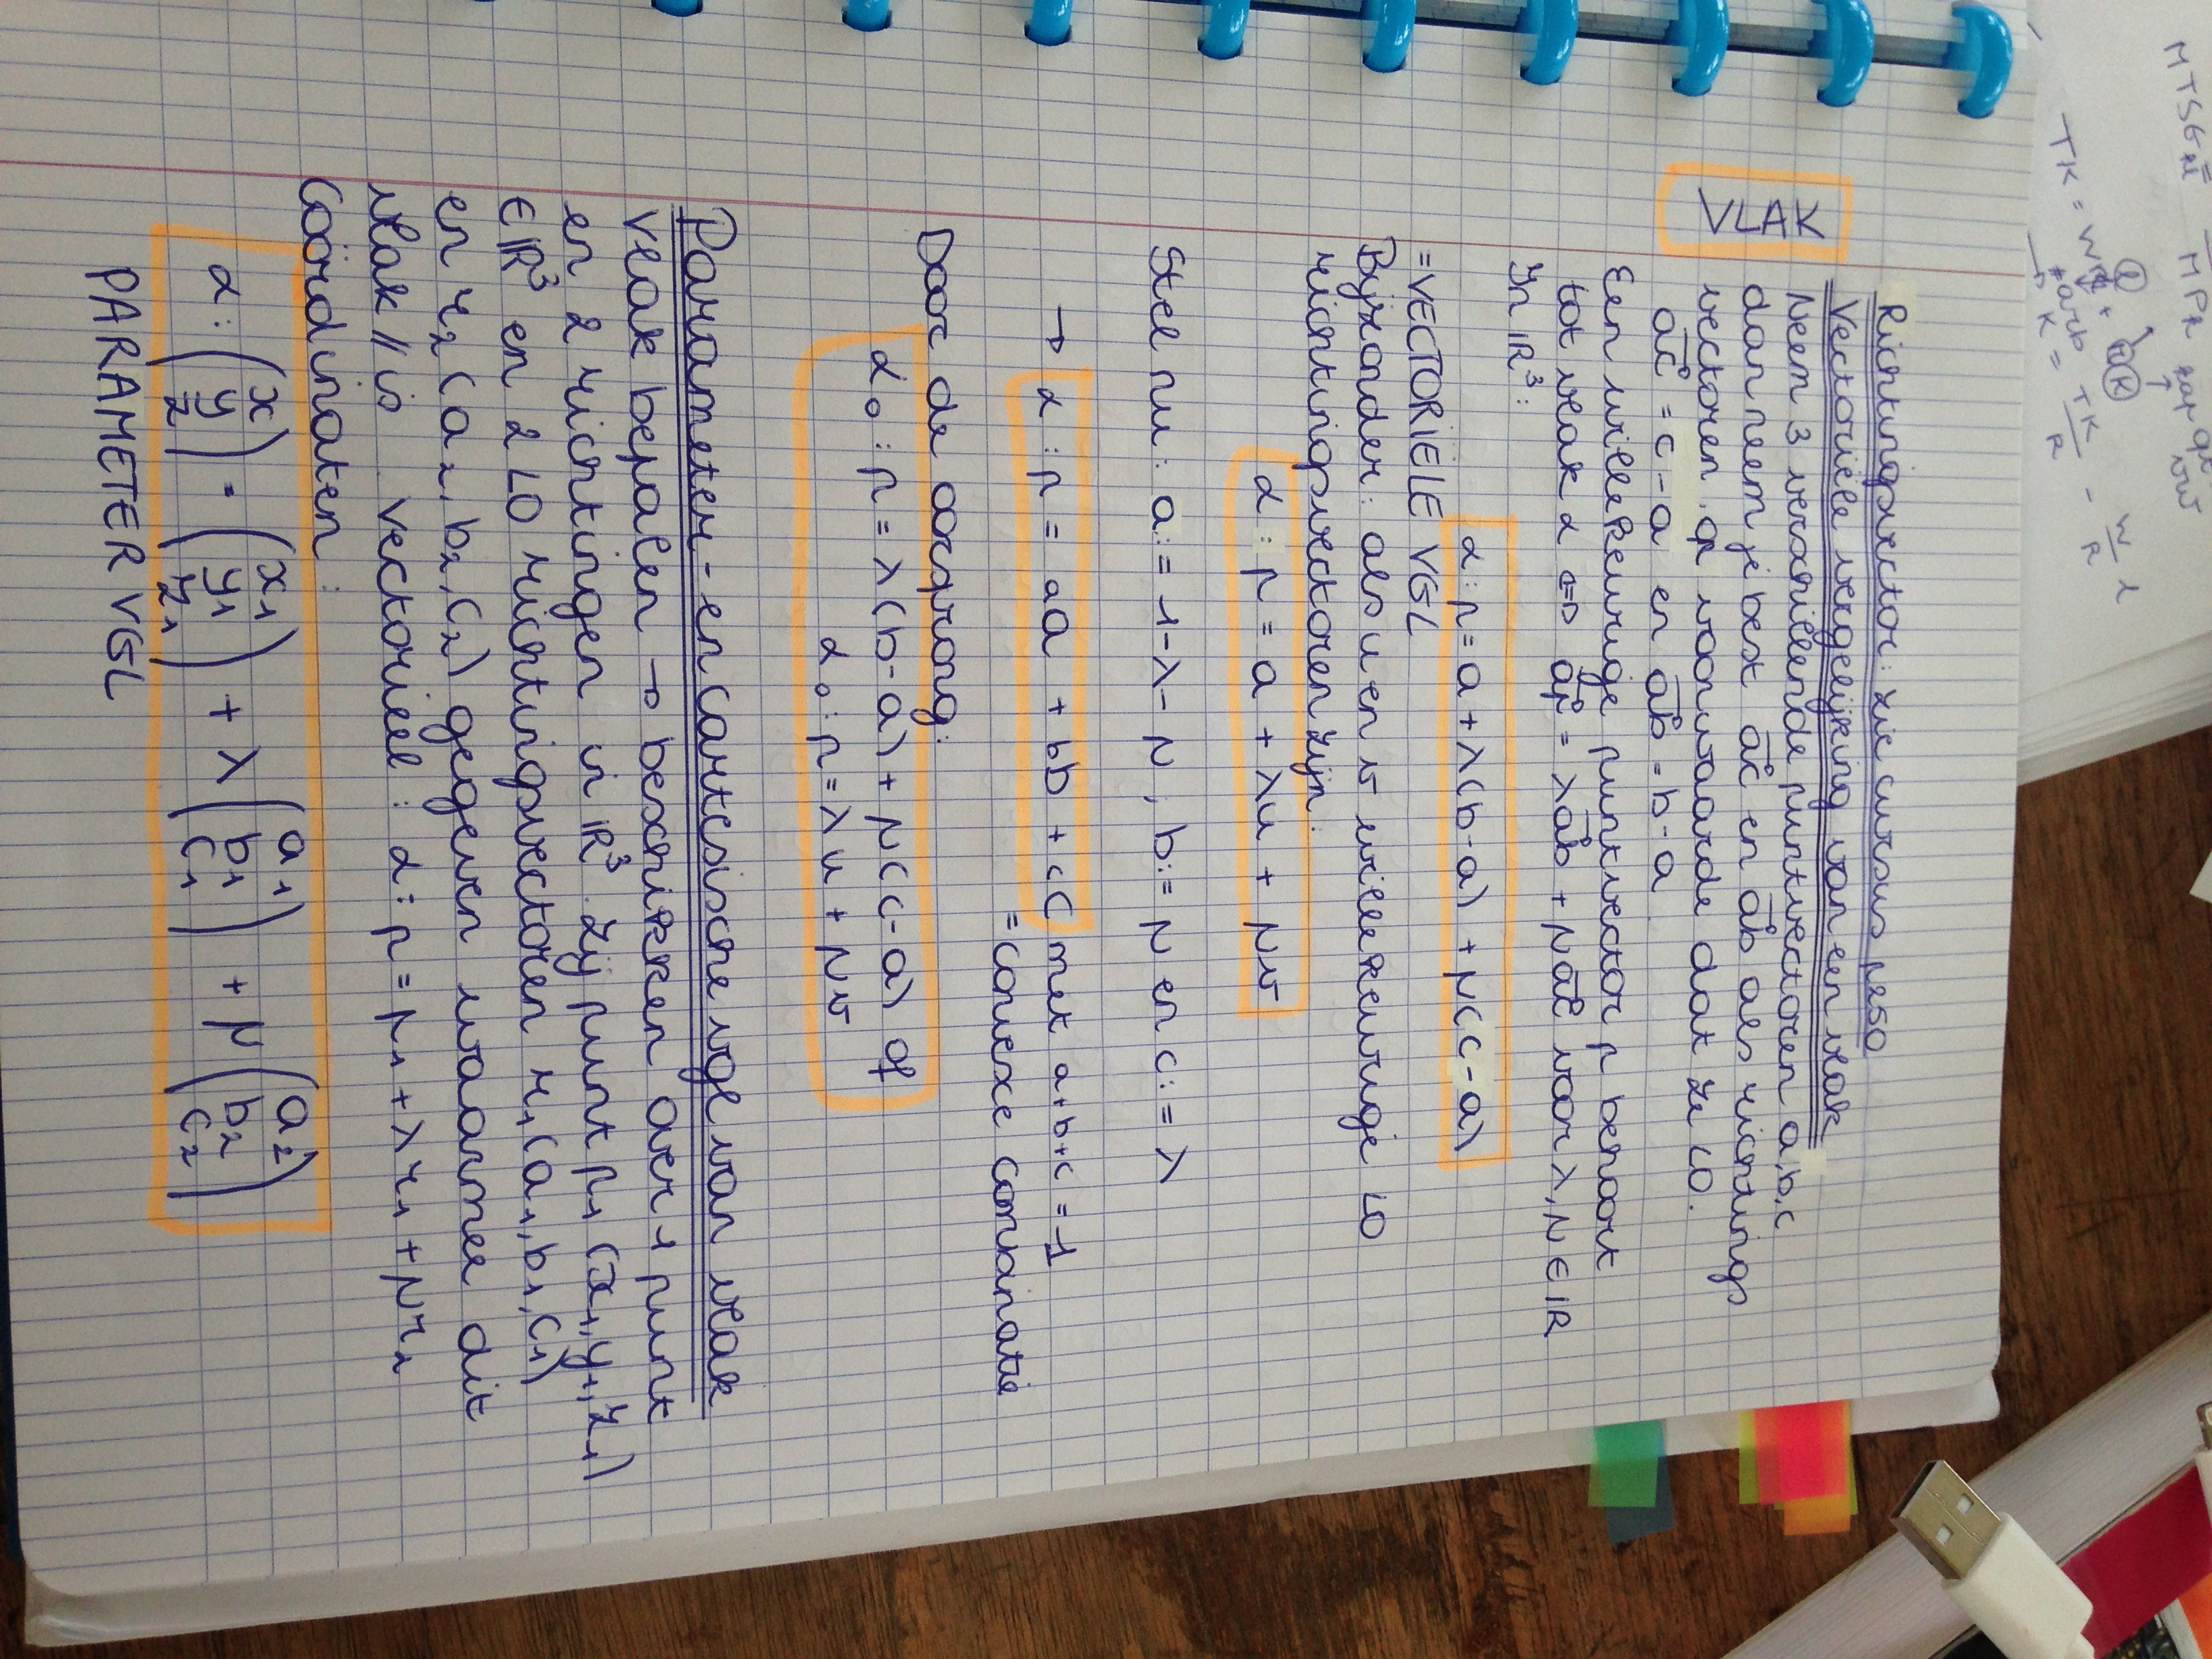 VLAK
Richtingsvector: zie cursus p250
Vectoriële vergelijking van een vlak
Neem 3 verschillende puntvectoren a, b, c
dan neem je best ac en ab als richtings
vectoren op voorwaarde dat ze LO.
ac = c - a en ab = b - a
Een willekeurige puntvector p behoort
tot vlak α ⇔ ap = λab + μac voor λ, μ ∈ ℝ
In ℝ³:
α: p = a + λ(b-a) + μ(c-a)
= VECTORIELE VGL
Bijzonder: als u en v willekeurige LO
richtingsvectoren zijn:
α: p = a + λu + μv
Stel nu: a:= 1-λ-μ, b:= μ en c:= λ
→ α: p = aa + bb + cc met a+b+c = 1
= convexe combinatie
Door de oorsprong:
α₀: p = λ(b-a) + μ(c-a) of
α₀: p = λu + μv
Parameter- en cartesische vgl van vlak
vlak bepalen → beschikken over 1 punt
en 2 richtingen in ℝ³. Zij punt p₁ (x₁, y₁, z₁)
∈ ℝ³ en 2 LO richtingsvectoren r₁ (a₁, b₁, c₁)
en r₂ (a₂, b₂, c₂) gegeven waarmee dit
vlak // is Vectorieel: α: p = p₁ + λr₁ + μr₂
Coördinaten:
α: (x y z) = (x₁ y₁ z₁) + λ (a₁ b₁ c₁) + μ (a₂ b₂ c₂)
PARAMETER VGL